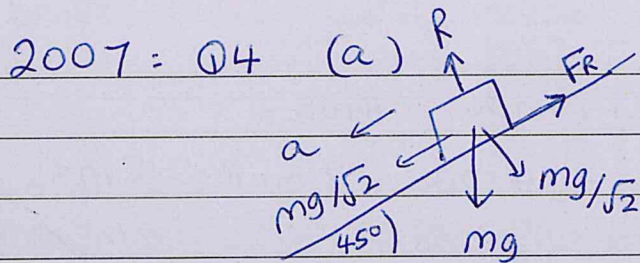 2007 : Q4 (a)
R
FR
a
mg/√2
mg/√2
45°
mg